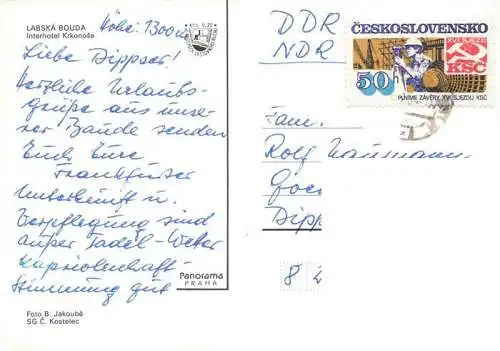 LABSKÁ BOUDA
Interhotel Krkonoše
Höhe: 1300 m
Liebe Dippser!
Herzliche Urlaubs-
grüße aus unse-
rer Baude senden
Euch Eure
Frankfurter
Unterkunft u.
Verpflegung sind
außer Tadel - Wetter
kapriolenhaft -
Stimmung gut
Panorama
PRAHA
Foto B. Jakoubě
SG Č. Kostelec
DDR
NDR
ČESKOSLOVENSKO
50
KSČ
PLNÍME ZÁVĚRY XVI. SJEZDU KSČ
Fam.
Rolf Naumann
Goe
Dipp
8 2